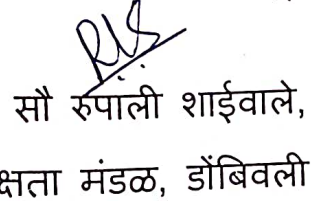 सौ रुपाली शाईवाले,
क्षता मंडळ, डोंबिवली